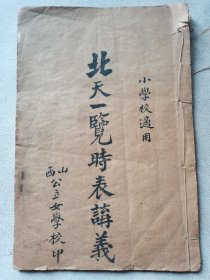 小學校適用
北天一覽時表講義
山西公立女學校印